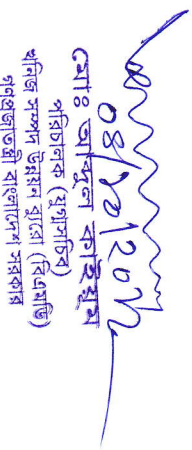 ০৪/১০/২০২১
মোঃ আব্দুল কাইয়ুম
পরিচালক (যুগ্মসচিব)
খনিজ সম্পদ উন্নয়ন ব্যুরো (বিএমডি)
গণপ্রজাতন্ত্রী বাংলাদেশ সরকার